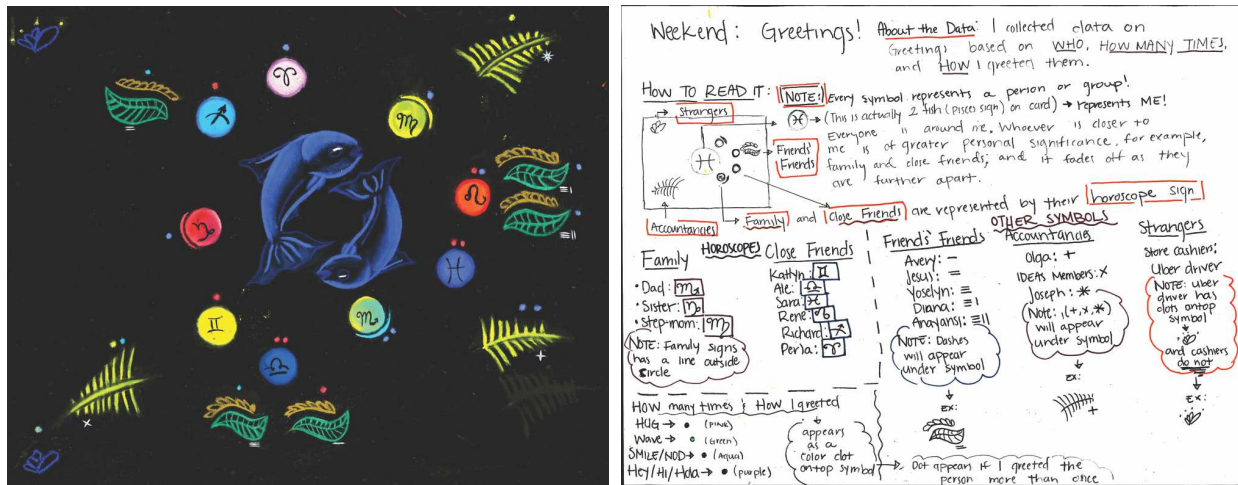 Weekend: Greetings! About the Data: I collected data on
Greetings based on WHO, HOW MANY TIMES,
and HOW I greeted them.
HOW TO READ IT:
NOTE: Every symbol represents a person or group!
(This is actually 2 fish (pisco sign) on card) → represents ME!
Everyone is around me. Whoever is closer to
me is of greater personal significance, for example,
family and close friends, and it fades off as they
are further apart.
Strangers
Friends' Friends
Accountancies
Family and Close Friends are represented by their horoscope sign
HOROSCOPES
Family
• Dad: ♏
• Sister: ♑
• Step-mom: ♍
NOTE: Family signs
has a line outside
circle
Close Friends
Katlyn: ♊
Ale: ♎
Sara: ♓
Rene: ♌
Richard: ♐
Perla: ♈
OTHER SYMBOLS
Friend's Friends
Avery: –
Jesus: =
Yoselyn: ≡
Diana: ≡ I
Anayansi: ≡ II
NOTE: Dashes
will appear
under symbol
EX:
Accountancies
Olga: +
IDEAS Members: X
Joseph: *
Note: (+, x, *)
will appear
under symbol
EX:
+
Strangers
Store cashiers:
Uber driver
NOTE: Uber
driver has
dots ontop
symbol
and cashiers
do not
EX:
HOW many times & How I greeted
HUG → • (PINK)
Wave → • (Green)
SMILE/NOD → • (Aqua)
Hey/Hi/Hola → • (purple)
appears
as a
color dot
ontop symbol
Dot appear if I greeted the
person more than once